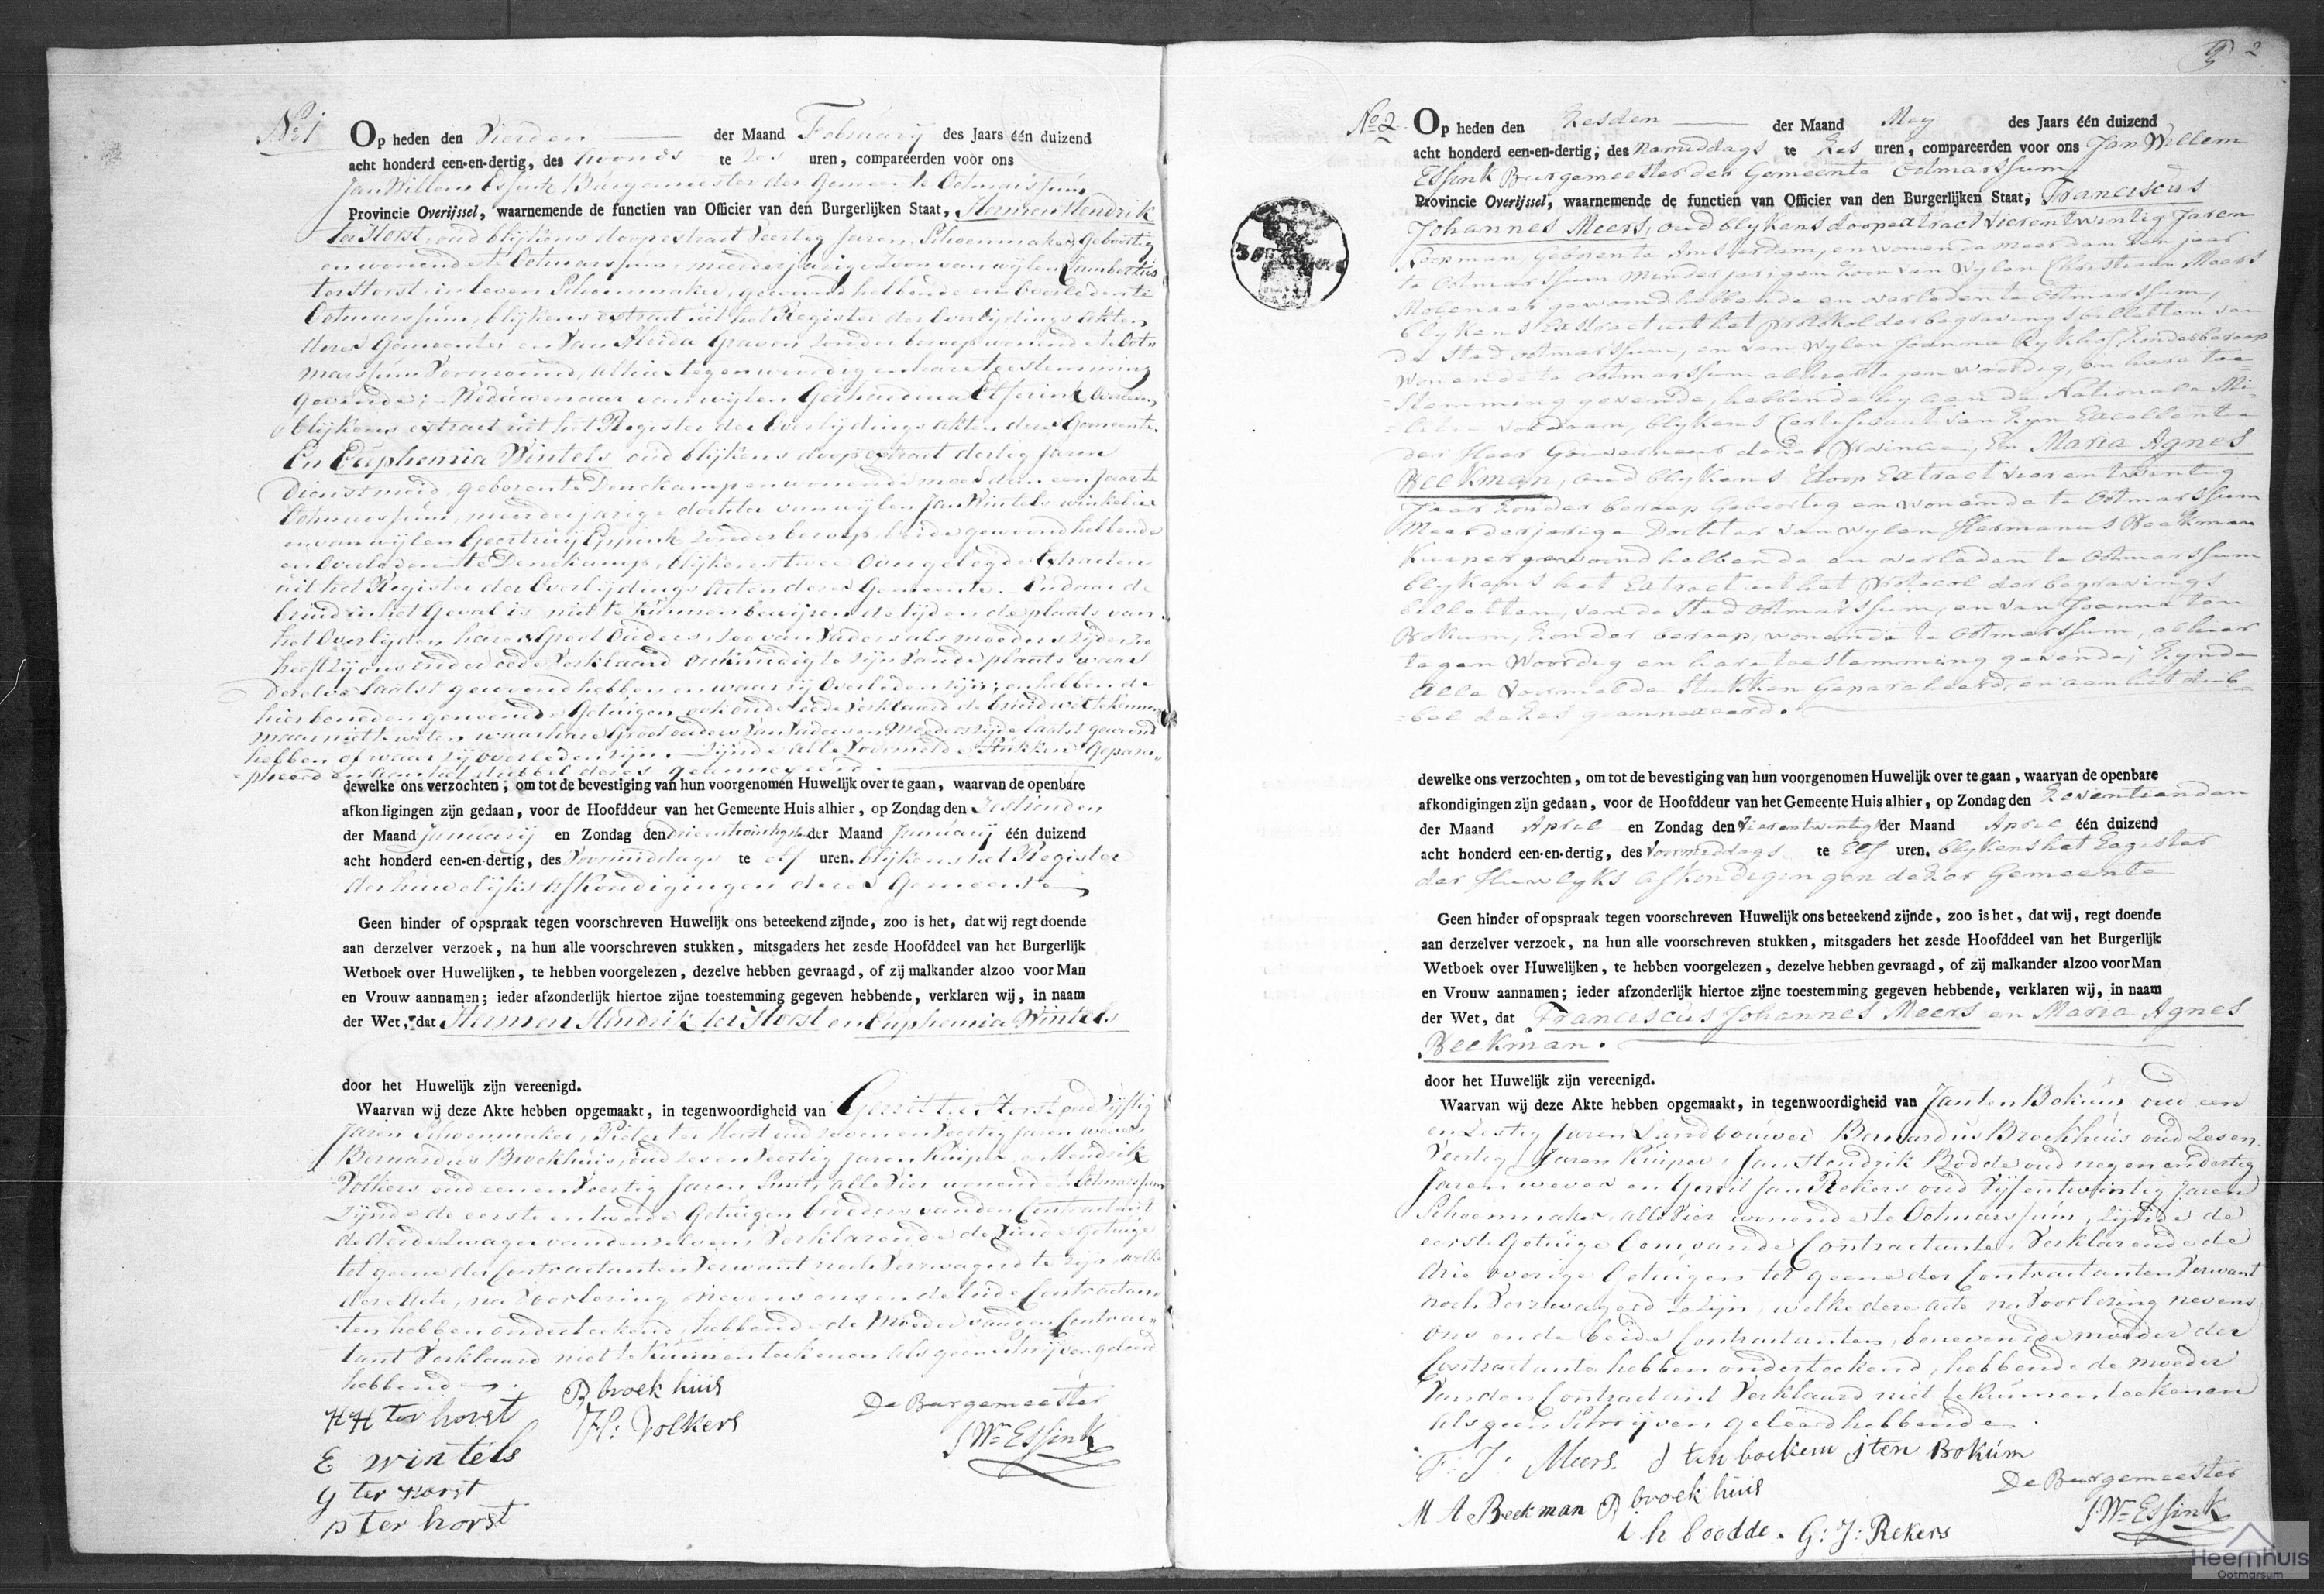 No 1
Op heden den Vierden der Maand Februarij des Jaars één duizend
acht honderd een-en-dertig, des Avonds te Zes uren, compareerden voor ons
Jan Willem Essink Burgemeester der Gemeente Ootmarssum
Provincie Overijssel, waarnemende de functien van Officier van den Burgerlijken Staat, Herman Hendrik
ter Horst, oud blijkens doopextract Veertig Jaren, Schoenmaker, Geboortig
en wonende te Ootmarssum, meerderjarige Zoon van wijlen Lambertus
ter Horst in leven Schoenmaker, gewoond hebbende en overleden te
Ootmarssum, blijkens extract uit het Register der Overlijdings Akten
dezer Gemeente en Van Aleida Graven zonder beroep wonende te Oot-
marssum Voornoemd, alhier tegenwoordig en hare toestemming
gevende; Weduwenaar van wijlen Gerhardina Elferink Overleden
blijkens extract uit het Register der Overlijdings Akten dezer Gemeente.
En Euphemia Wintels oud blijkens doopextract dertig Jaren
Dienstmeid, geboren te Denekamp en wonende meer dan een Jaar te
Ootmarssum, meerderjarige dochter van wijlen Jan Wintels winkelier
en van wijlen Geertruij Eppink zonder beroep, beide gewoond hebbende
en Overleden te Denekamp, blijkens twee Overgelegde Extracten
uit het Register der Overlijdings Akten dezer Gemeente. En daar de
bruid in het Geval is niet te kunnen bewijzen de tijd en de plaats van
het Overlijden harer Groot Ouders, zoo van Vaders als moeders zijde, zoo
heeft zij ons onder eede Verklaard onkundig te zijn Van de plaats waar
dezelve laatst gewoond hebben en waar zij Overleden zijn; en hebben de
hier beneden genoemde Getuigen ook onder eede Verklaard de bruid wel te kennen
maar niet te weten, waar hare Groot ouders Van Vaders en Moeders zijde laatst gewoond
hebben of waar zij overleden zijn. Zijnde alle Voormelde Stukken Gepara-
pheerd en aan het dubbel dezes geannexeerd.
dewelke ons verzochten, om tot de bevestiging van hun voorgenomen Huwelijk over te gaan, waarvan de openbare
afkondigingen zijn gedaan, voor de Hoofddeur van het Gemeente Huis alhier, op Zondag den Zestienden
der Maand Januarij en Zondag den drieentwintigsten der Maand Januarij één duizend
acht honderd een-en-dertig, des Voormiddags te elf uren. blijkens het Register
der huwelijks afkondigingen dezer Gemeente
Geen hinder of opspraak tegen voorschreven Huwelijk ons beteekend zijnde, zoo is het, dat wij regt doende
aan derzelver verzoek, na hun alle voorschreven stukken, mitsgaders het zesde Hoofddeel van het Burgerlijk
Wetboek over Huwelijken, te hebben voorgelezen, dezelve hebben gevraagd, of zij malkander alzoo voor Man
en Vrouw aannamen; ieder afzonderlijk hiertoe zijne toestemming gegeven hebbende, verklaren wij, in naam
der Wet, dat Herman Hendrik ter Horst en Euphemia Wintels
door het Huwelijk zijn vereenigd.
Waarvan wij deze Akte hebben opgemaakt, in tegenwoordigheid van Gerrit ter Horst oud Vijftig
Jaren Schoenmaker, Pieter ter Horst oud zeven en Veertig Jaren wever,
Bernardus Broekhuis, oud zes en Veertig Jaren Kuiper en Hendrik
Volkers oud een en Veertig Jaren Smit, alle Vier wonende te Ootmarssum
Zijnde de eerste en tweede Getuigen broeders van den Contractant
de derde Zwager van denzelven, Verklarende de Vierde Getuige
tot geene der Contractanten Verwant noch Verzwagerd te zijn, welke
deze Akte, na Voorlezing nevens ons en de beide Contractan-
ten hebben onderteekend, hebbende de Moeder van den Contrac-
tant Verklaard niet te kunnen teekenen als geen schrijven geleerd
hebbende.
HH ter horst B broekhuis De Burgemeester
E wintels H: Volkers JWm Essink
g ter horst
p ter horst
2
No 2
Op heden den Zesden der Maand Mey des Jaars één duizend
acht honderd een-en-dertig, des Namiddags te Zes uren, compareerden voor ons Jan Willem
Essink Burgemeester der Gemeente Ootmarssum
Provincie Overijssel, waarnemende de functien van Officier van den Burgerlijken Staat, Franciscus
Johannes Meers, oud blykens doopextract Vierentwintig Jaren
Koopman, Geboren te Amsterdam, en wonende meer dan een jaar
te Ootmarssum Minderjarigen Zoon van Wylen Christiaan Meers
Molenaar gewoond hebbende en overleden te Ootmarssum,
blykens Extract uit het protokol der begravings billetten van
de Stad Ootmarssum, en van Wylen Joanna Rykhof Zonder beroep
Wonende te Ootmarssum alhier tegenwoordig, en hare toe-
stemming gevende, hebbende hy aan de Nationale Mi-
litie voldaan, blykens Certificaat van Zyn Excellentie
den Heer Gouverneur dezer Provincie, En Maria Agnes
Beekman, oud blykens Doop Extract vier en twintig
Jaar Zonder beroep Geboortig en wonende te Ootmarssum
Meerderjarige Dochter van Wylen Hermanus Beekman
Kuiper gewoond hebbende en overleden te Ootmarssum
blykens het Extract uit het Protocol der begravings
billetten, van de Stad Ootmarssum, en van Joanna ten
Bokum, Zonder beroep, wonende te Ootmarssum, alhier
tegenwoordig en hare toestemming gevende; Zynde
alle Voormelde Stukken Geparapheerd, en aan het dub-
bel dezes geannexeerd.
dewelke ons verzochten, om tot de bevestiging van hun voorgenomen Huwelijk over te gaan, waarvan de openbare
afkondigingen zijn gedaan, voor de Hoofddeur van het Gemeente Huis alhier, op Zondag den Zeventienden
der Maand April en Zondag den Vierentwintigst der Maand April één duizend
acht honderd een-en-dertig, des Voormiddags te Elf uren. blykens het Register
der Huwlyks afkondigingen dezer Gemeente
Geen hinder of opspraak tegen voorschreven Huwelijk ons beteekend zijnde, zoo is het, dat wij, regt doende
aan derzelver verzoek, na hun alle voorschreven stukken, mitsgaders het zesde Hoofddeel van het Burgerlijk
Wetboek over Huwelijken, te hebben voorgelezen, dezelve hebben gevraagd, of zij malkander alzoo voor Man
en Vrouw aannamen; ieder afzonderlijk hiertoe zijne toestemming gegeven hebbende, verklaren wij, in naam
der Wet, dat Franciscus Johannes Meers en Maria Agnes
Beekman.
door het Huwelijk zijn vereenigd.
Waarvan wij deze Akte hebben opgemaakt, in tegenwoordigheid van Jan ten Bokum oud een
en Zestig Jaren Landbouwer Bernardus Broekhuis oud Zes en
Veertig Jaren Kuiper, Jan Hendrik Bodde oud negen en dertig
Jaren wever en Gerrit Jan Rekers oud Vijfentwintig Jaren
Schoenmaker, alle Vier wonende te Ootmarssum, zijnde de
eerste Getuige Oom van de Contractante, Verklarende de
drie overige Getuigen tot geene der Contractanten Verwant
noch Verzwagerd te zijn, welke deze acte na Voorlezing nevens
ons en de beide Contractanten, benevens de moeder der
Contractante hebben onderteekend, hebbende de moeder
van den Contractant Verklaard niet te kunnen teekenen
als geen Schrijven geleerd hebbende.
F: J: Meers. J ten boekem j ten Bokum
De Burgemeester
M A Beekman B broekhuis JWm Essink
i h boodde. G: J: Rekers
Heemhuis
Ootmarsum